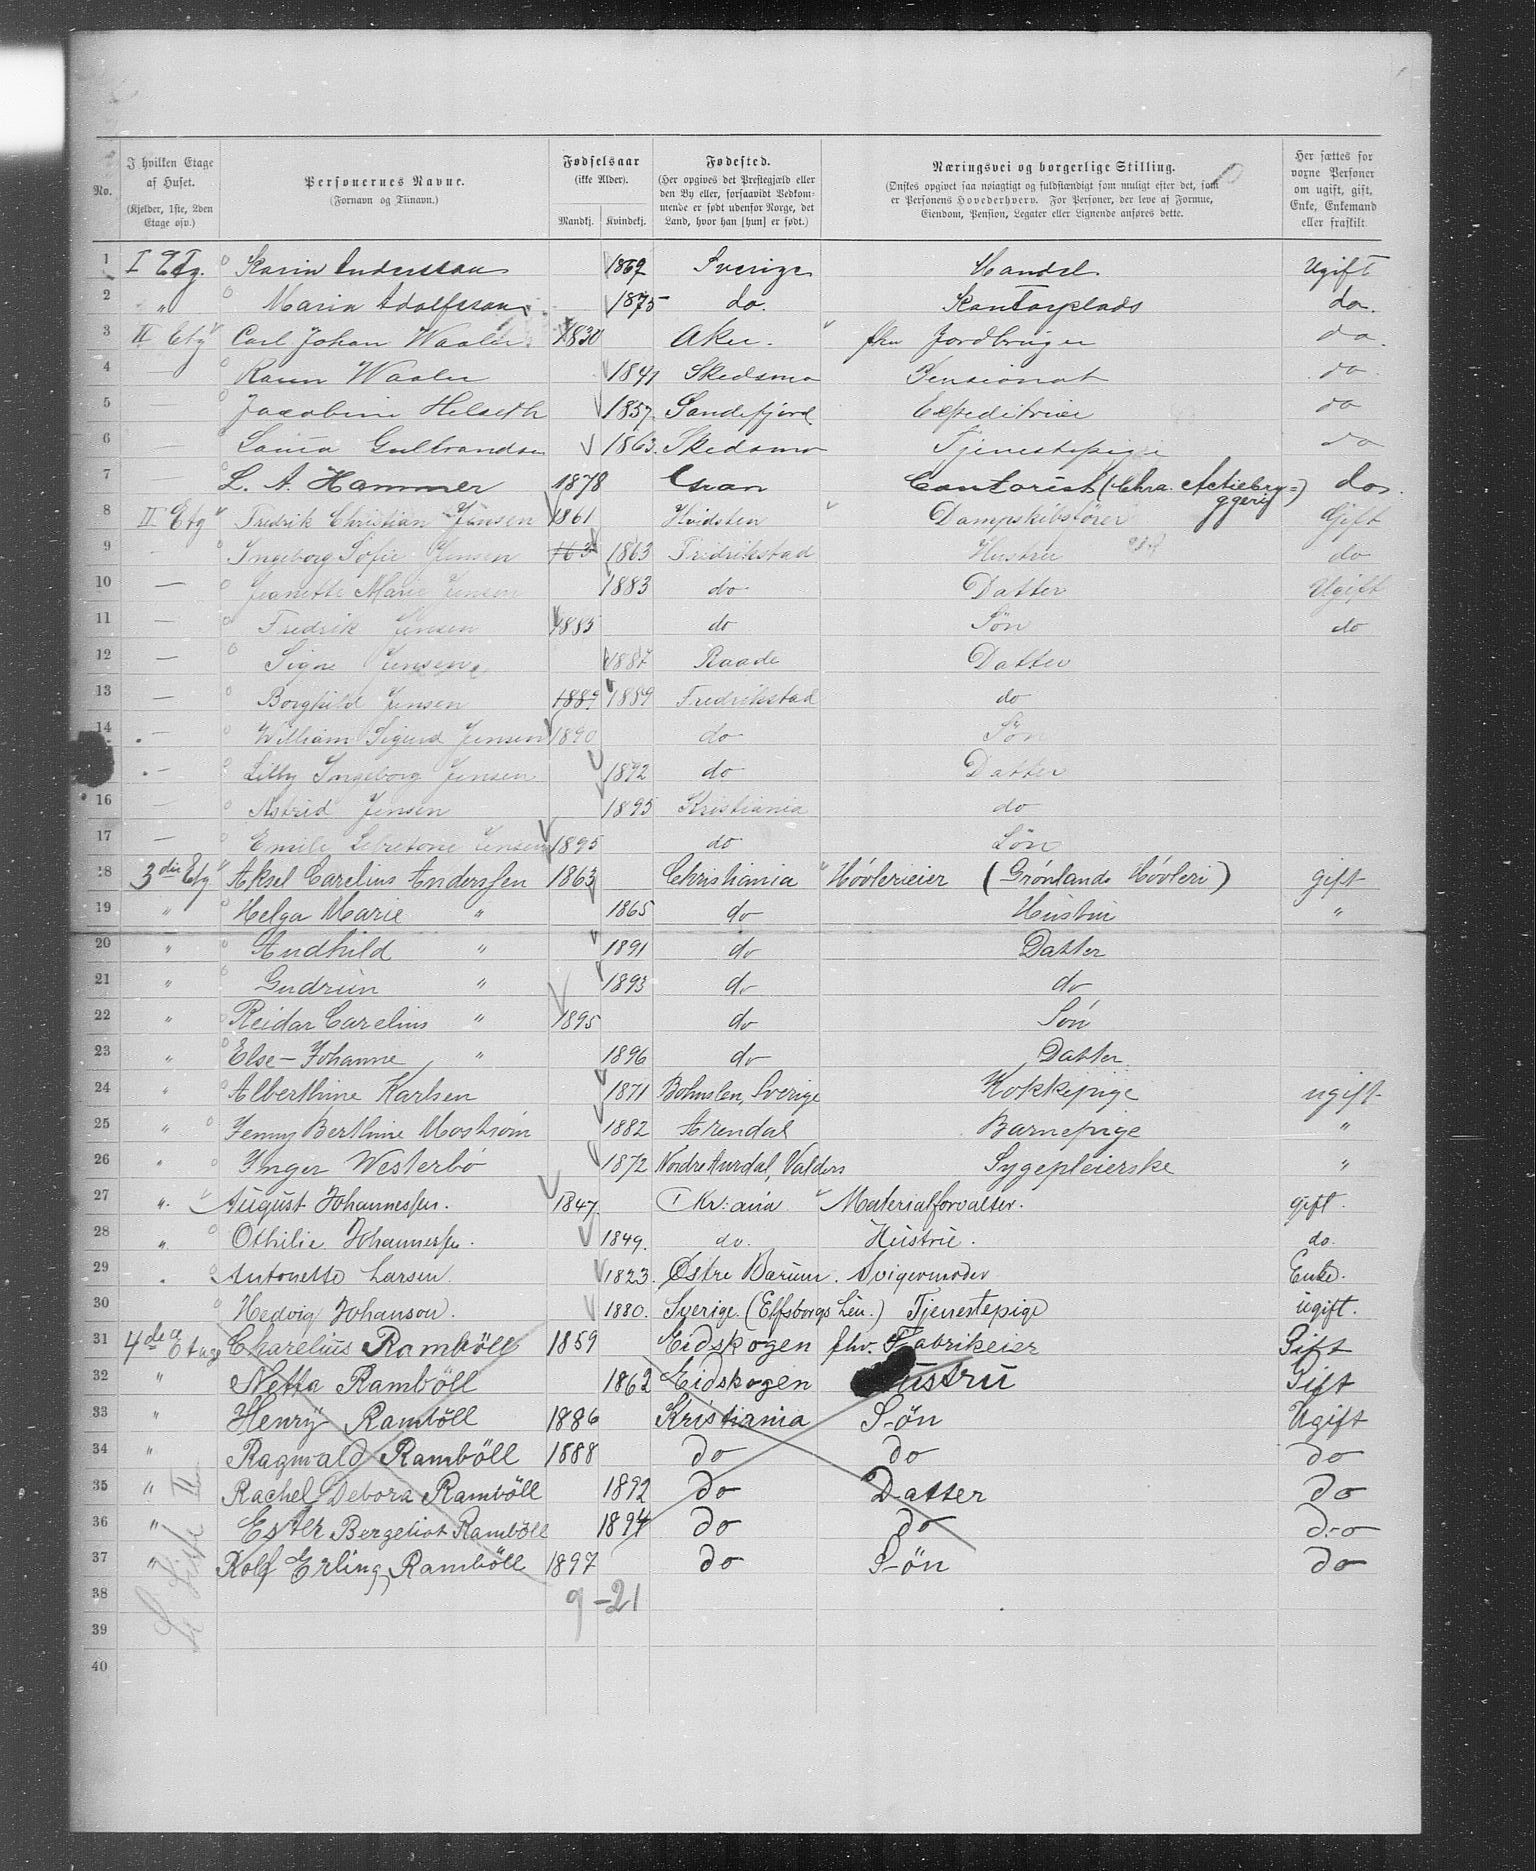 No. I hvilken Etage af Huset. (Kjelder, 1ste, 2den Etage osv.) Personernes Navne. (Fornavn og Tilnavn.) Fødselsaar (ikke Alder). Mandkj. Kvindekj. Fødested. (Her opgives det Prestegjæld eller den By eller, forsaavidt Vedkommende er født udenfor Norge, det Land, hvor han [hun] er født.) Næringsvei og borgerlige Stilling. (Ønskes opgivet saa nøiagtigt og fuldstændigt som muligt efter det, som er Personens Hovederhverv. For Personer, der leve af Formue, Eiendom, Pension, Legater eller Lignende anføres dette.) Her sættes for voxne Personer om ugift, gift, Enke, Enkemand eller fraskilt
1 I Etg. Karin Andersson 1869 Sverige Handel. Ugift
2 " Maria Adolfsson 1875 do. Kontorplads do.
3 II Etg Carl Johan Waaler 1830 Aker. fhv Jordbruger do.
4 — Karen Waaler 1841 Skedsmo Pensionat do.
5 — Jacobine Helseth 1857. Sandefjord Expeditrice do
6 — Lovisa Gulbrandsen 1863. Skedsmo Tjenestepige do
7 — L. A. Hammer 1878 Gran Contorist (Chra. Actiebryggeri) do.
8 II Etg Fredrik Christian Jensen 1861 Hvidsten Dampskibsfører Gift
9 — Ingeborg Sofie Jensen 1863 Fredrikstad Hustru do
10 — Jeanette Marie Jensen 1883 do Datter Ugift
11 — Fredrik Jensen 1885 do Søn do
12 — Signe Jensen 1887 Raade Datter
13 — Borghild Jensen 1889 1889 Fredrikstad do
14 — William Sigurd Jensen 1890 do Søn
— Lilly Ingeborg Jensen 1892 do Datter
16 — Astrid Jensen 1895 Kristiania do
17 — Emile Jensen 1895 do Søn
18 3die Etg Aksel Carelius Anderssen 1863 Christiania Høvlerieier (Grønlands Høvleri) gift
19 " Helga Marie " 1865 do Hustru "
20 " Audhild " 1891 do Datter
21 " Gudrun " 1893 do do
22 " Reidar Carelius " 1895 do Søn
23 " Else-Johanne " 1896 do Datter
24 " Alberthine Karlsen 1871 Bohuslen, Sverige Kokkepige ugift
25 " Jenny Berthine Mostrøm 1882 Arendal Barnepige "
26 " Inger Westerbø 1872 Nordre Aurdal, Valders Sygepleierske "
27 " August Johannessen. 1847 Kr:ania Materialforvalter. gift.
28 " Othilie Johannessen. 1849. do. Hustru. do.
29 " Antonette Larsen. 1823. Østre Bærum. Svigermoder Enke.
30 Hedvig Johanson. 1880. Sverige. (Elfsborgs Len.) Tjenestepige ugift.
31 4de Etage Charelius Ramböll 1859 Eidskogen fhv. Fabrikeier Gift
32 " Netta Ramböll 1862 Eidskogen Hustru Gift
33 " Henry Ramböll 1886 Kristiania Søn Ugift
34 " Ragnvald Ramböll 1888 do do do
35 " Rachel Debora Ramböll 1892 do Datter do
36 " Ester Bergeliot Ramböll 1894 do do do
37 " Rolf Erling Ramböll 1897 do Søn do
38 9-21
39
40
Se Liste II